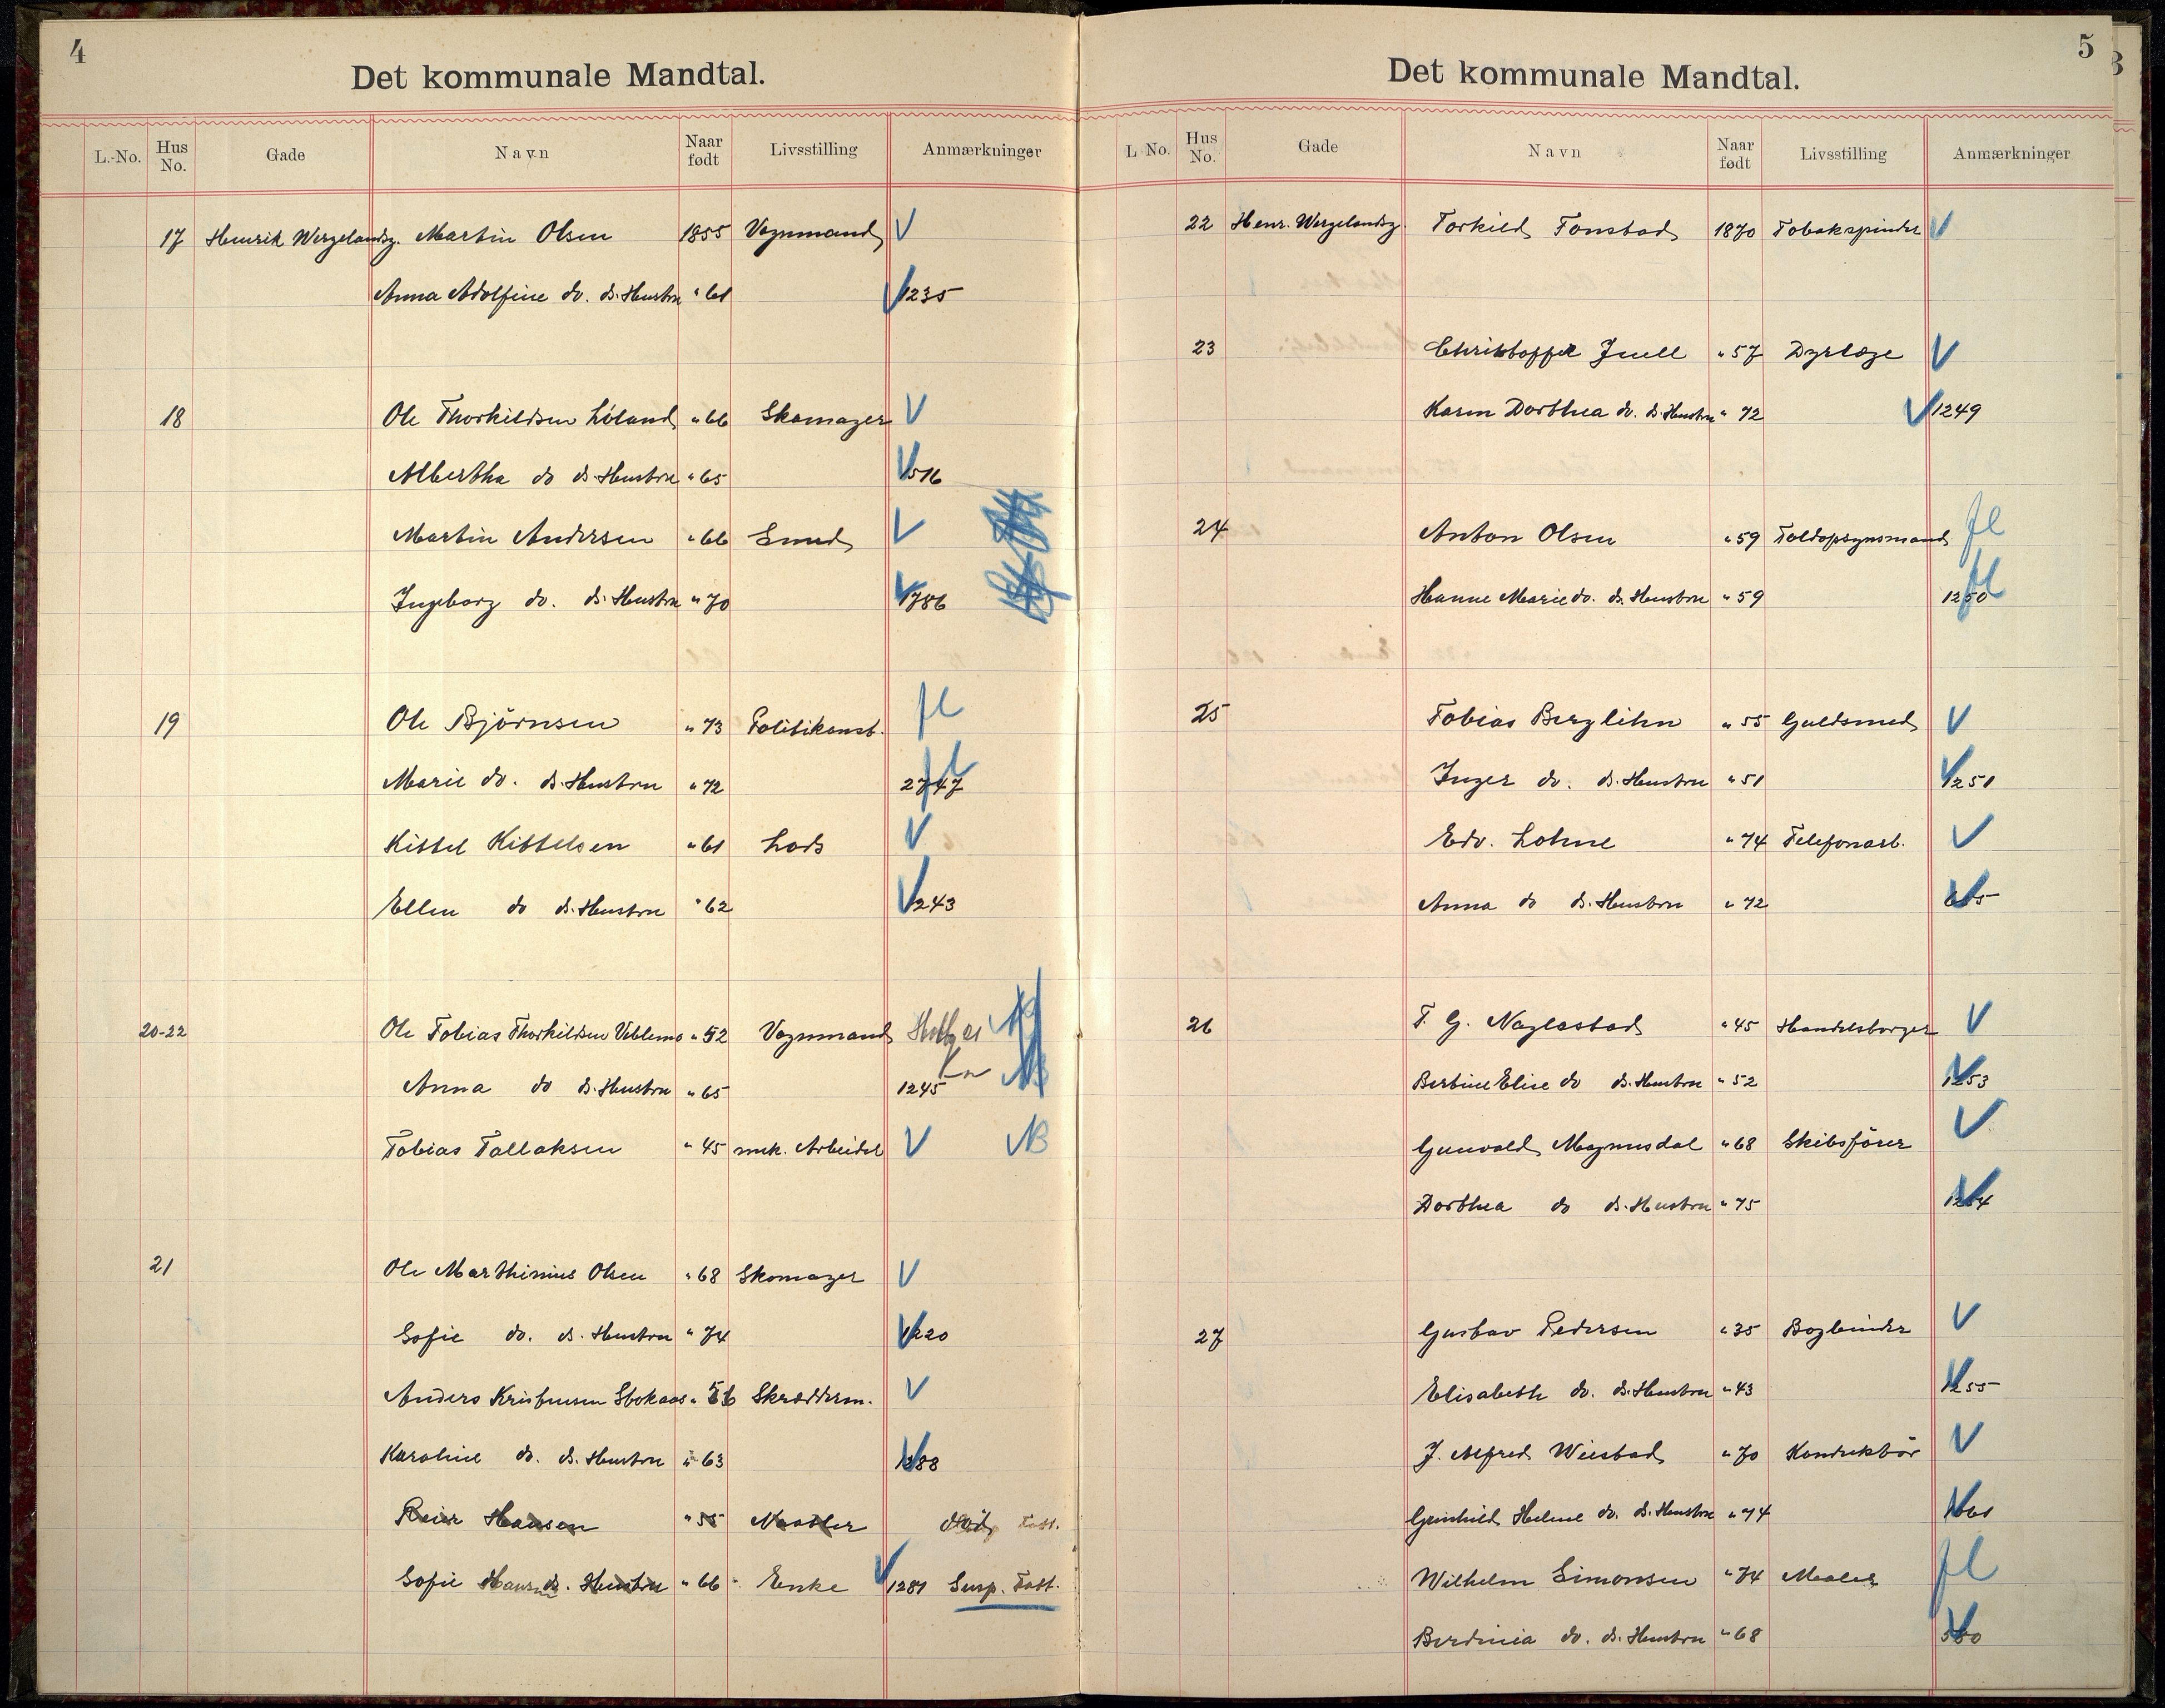 4
Det kommunale Mandtal.
L.-No. Hus No. Gade Navn Naar født Livsstilling Anmærkninger
17 Henrik Wergelandsg. Martin Olsen 1855 Vognmand V
Anna Adolfine do. d. Hustru " 61 V 1235
18 Ole Thorkildsen Löland " 66 Skomager V
Albertha do d. Hustru " 65 V 516
Martin Andersen " 66 Smed V
Ingeborg do. d. Hustru " 70 V 786
19 Ole Björnsen " 73 Politikonst. fl
Marie do. d. Hustru " 72 2747 fl
Kittel Kittelsen " 61 Lods V
Ellen do d. Hustru " 62 V 1243
20-22 Ole Tobias Thorkildsen Vehlemo " 52 Vognmand
Anna do d. Hustru " 65 1245
Tobias Tallaksen " 45 mek. Arbeider V NB
21 Ole Marthinius Olsen " 68 Skomager V
Sofie do. d. Hustru " 74 V 1220
Anders Kristensen Stokaas " 56 Skræderm. V
Karoline do. d. Hustru " 63 V 1288
Reier Hansen " 55 Maaler död Fatt.
Sofie Hansen d. Hustru " 66 Enke V 1281 Susp. Fatt.
5
Det kommunale Mandtal.
L No. Hus No. Gade Navn Naar født Livsstilling Anmærkninger
22 Henr. Wergelandsg. Torkild Fonstad 1870 Tobakspinder V
23 Christoffer Juell " 57 Dyrlæge V
Karen Dorthea do. d. Hustru " 72 V 1249
24 Anton Olsen " 59 Toldopsynsmand fl
Hanne Marie do. d. Hustru " 59 1250 fl
25 Tobias Berglihn " 55 Guldsmed V
Inger do. d. Hustru " 51 V 1251
Edv. Lohne " 74 Telefonarb. V
Anna do d. Hustru " 72 V
26 T. G. Naglestad " 45 Handelsborger V
Bertine Elise do d. Hustru " 52 V 1253
Gunvald Magnusdal " 68 Skibsförer V
Dorthea do d. Hustru " 75 V 1254
27 Gustav Pedersen " 35 Bogbinder V
Elisabeth do. d. Hustru " 43 V 1255
J. Alfred Wiestad " 70 Konduktör V
Gunhild Helene do. d. Hustru " 74 V
Wilhelm Simonsen " 74 Maaler fl
Berdinia do. d. Hustru " 68 V